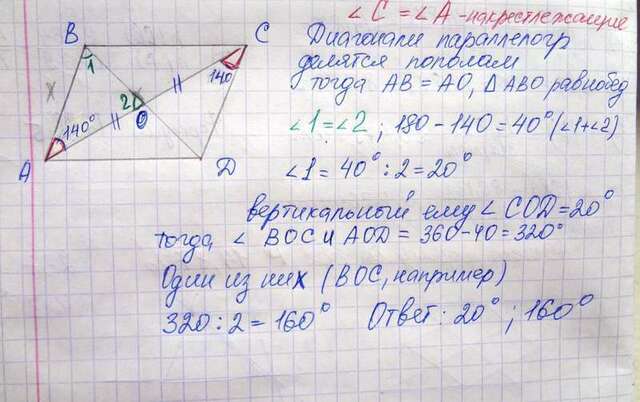 ∠C = ∠A - накрестлежащие
B
C
Диагонали параллелогр
делятся пополам
1
140
тогда AB = AO, ΔABO равнобед
2
140°
O
∠1=∠2; 180-140=40°(∠1+∠2)
A
D
∠1 = 40°:2=20°
вертикальный ему ∠COD=20°
тогда ∠ BOC и AOD = 360-40=320°
Один из них (BOC, например)
320:2=160° Ответ: 20°; 160°